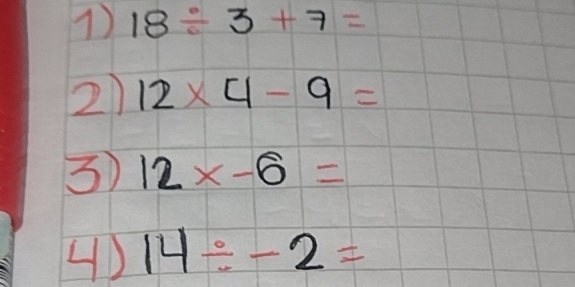 1) 18 ÷ 3 + 7 =
2) 12 × 4 - 9 =
3) 12 × -6 =
4) 14 ÷ -2 =